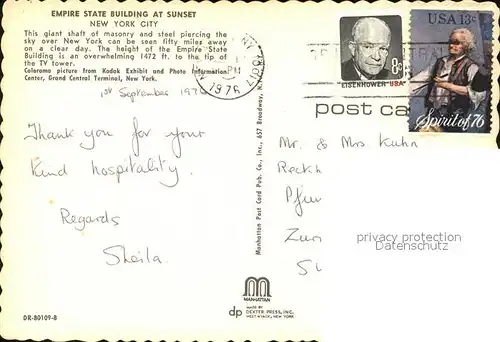 EMPIRE STATE BUILDING AT SUNSET
NEW YORK CITY
This giant shaft of masonry and steel piercing the
sky over New York can be seen fifty miles away
on a clear day. The height of the Empire State
Building is an overwhelming 1472 ft. to the tip of
the TV tower.
Colorama picture from Kodak Exhibit and Photo Information
Center, Grand Central Terminal, New York.
1st September 1976
Thank you for your
kind hospitality.
Regards
Sheila.
DR-80109-B
Manhattan Post Card Pub. Co., Inc., 657 Broadway, N.Y.
MANHATTAN
dp MADE BY
DEXTER PRESS, INC.
WEST NYACK, NEW YORK
NY
PM
1976
8c
EISENHOWER USA
USA 13c
Spirit of 76
post ca
Mr. & Mrs Kuhn
Reckh
Pfun
Zur
privacy protection
Datenschutz